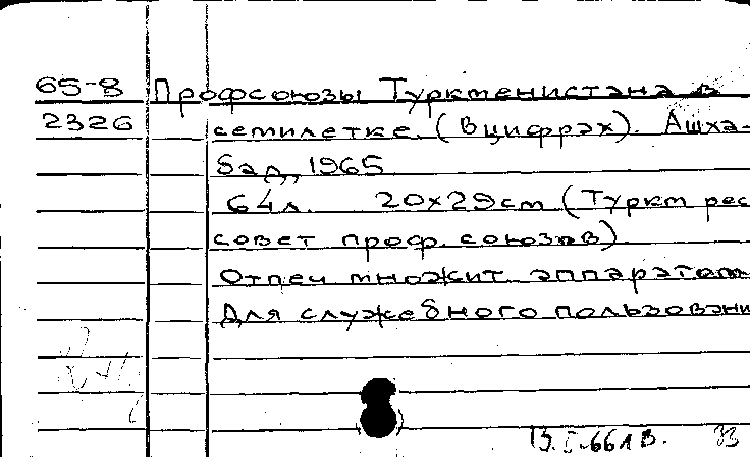 65-8 Профсоюзы Туркменистана в
2326 семилетке. (В цифрах). Ашха-
бад, 1965
64л. 20х29см (Туркм рес
совет проф. союзов)
Отпеч множит аппаратом
Для служебного пользовани
13.I.66 ЛВ. 33